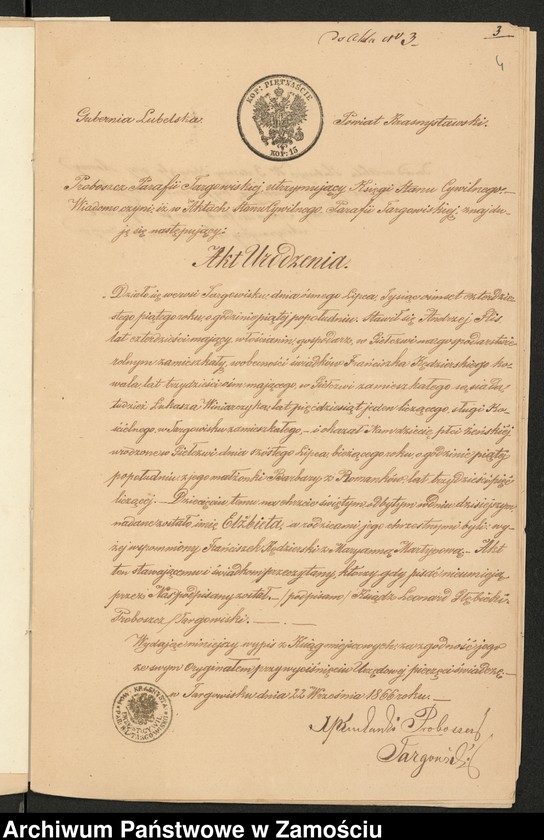 3
do Aktu Nº 3
4
KOP: PIĘTNAŚCIE
KOP: 15
Gubernia Lubelska.
Powiat Krasnystawski.
Proboszcz Parafii Targowiskiej, utrzymujący Księgi Stanu Cywilnego,-
Wiadomo czyni, iż w Aktach Stanu Cywilnego, Parafii Targowiskiej, znajdu-
je się następujący:
Akt Urodzenia.
Działo się we wsi Targowisku, dnia ósmego Lipca, Tysiąc ośmset czterdzie-
stego piątego roku, o godzinie piątej popołudniu. Stawił się Andrzej Flis
lat czterdzieści mający, włościanin, gospodarz, w
rolnym zamieszkały, w obecności świadków Franciszka Kędzierskiego ko-
wala, lat trzydzieści ośm mającego, w zamieszkałego,
tudzież Łukasza Winiarczyka, lat pięćdziesiąt jeden liczącego, sługi Ko-
ścielnego, w Targowisku zamieszkałego,- i okazał Nam dziecię płci żeńskiej,
urodzone w dnia szóstego Lipca, bieżącego roku, o godzinie piątej
popołudniu, z jego małżonki Barbary z Romanków, lat trzydzieści pięć
liczącej.- Dziecięciu temu na chrzcie świętym, odbytym w dniu dzisiejszym
nadane zostało imię Elżbieta, a rodzicami jego chrzestnymi byli: wy-
żej wspomniony Franciszek Kędzierski z Maryanną Martyponą.- Akt
ten stawającemu i świadkom przeczytany, którzy gdy pisać nieumieją,
przez Nas podpisany został.- /podpisano/ Ksiądz Leonard
Proboszcz /Targowiski.-
Wydając niniejszy wypis z Ksiąg miejscowych, za zgodność jego
ze swym Oryginałem, przy wyciśnięciu Urzędowej pieczęci świadczę.-
w Targowisku dnia 22 Września 1866 roku.-
Proboszcz
Targowiski
Archiwum Państwowe w Zamościu